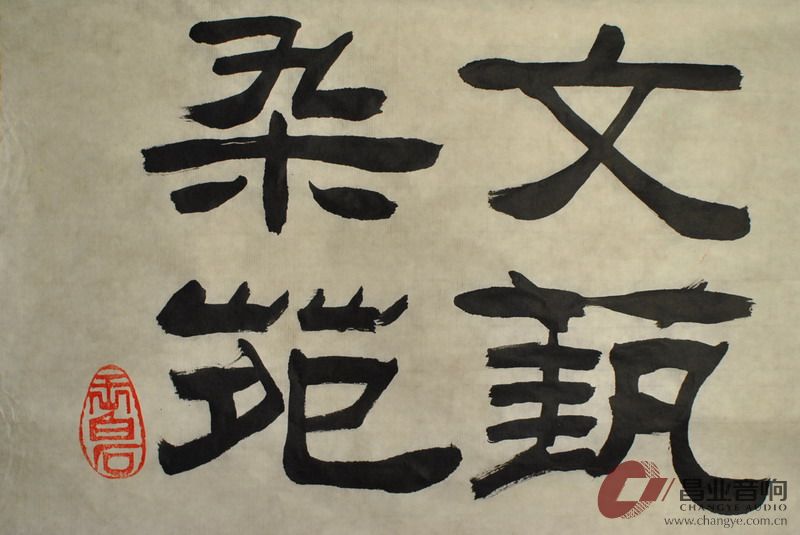 文蓺
杂苑
昌业音响
CHANGYE AUDIO
www.changye.com.cn